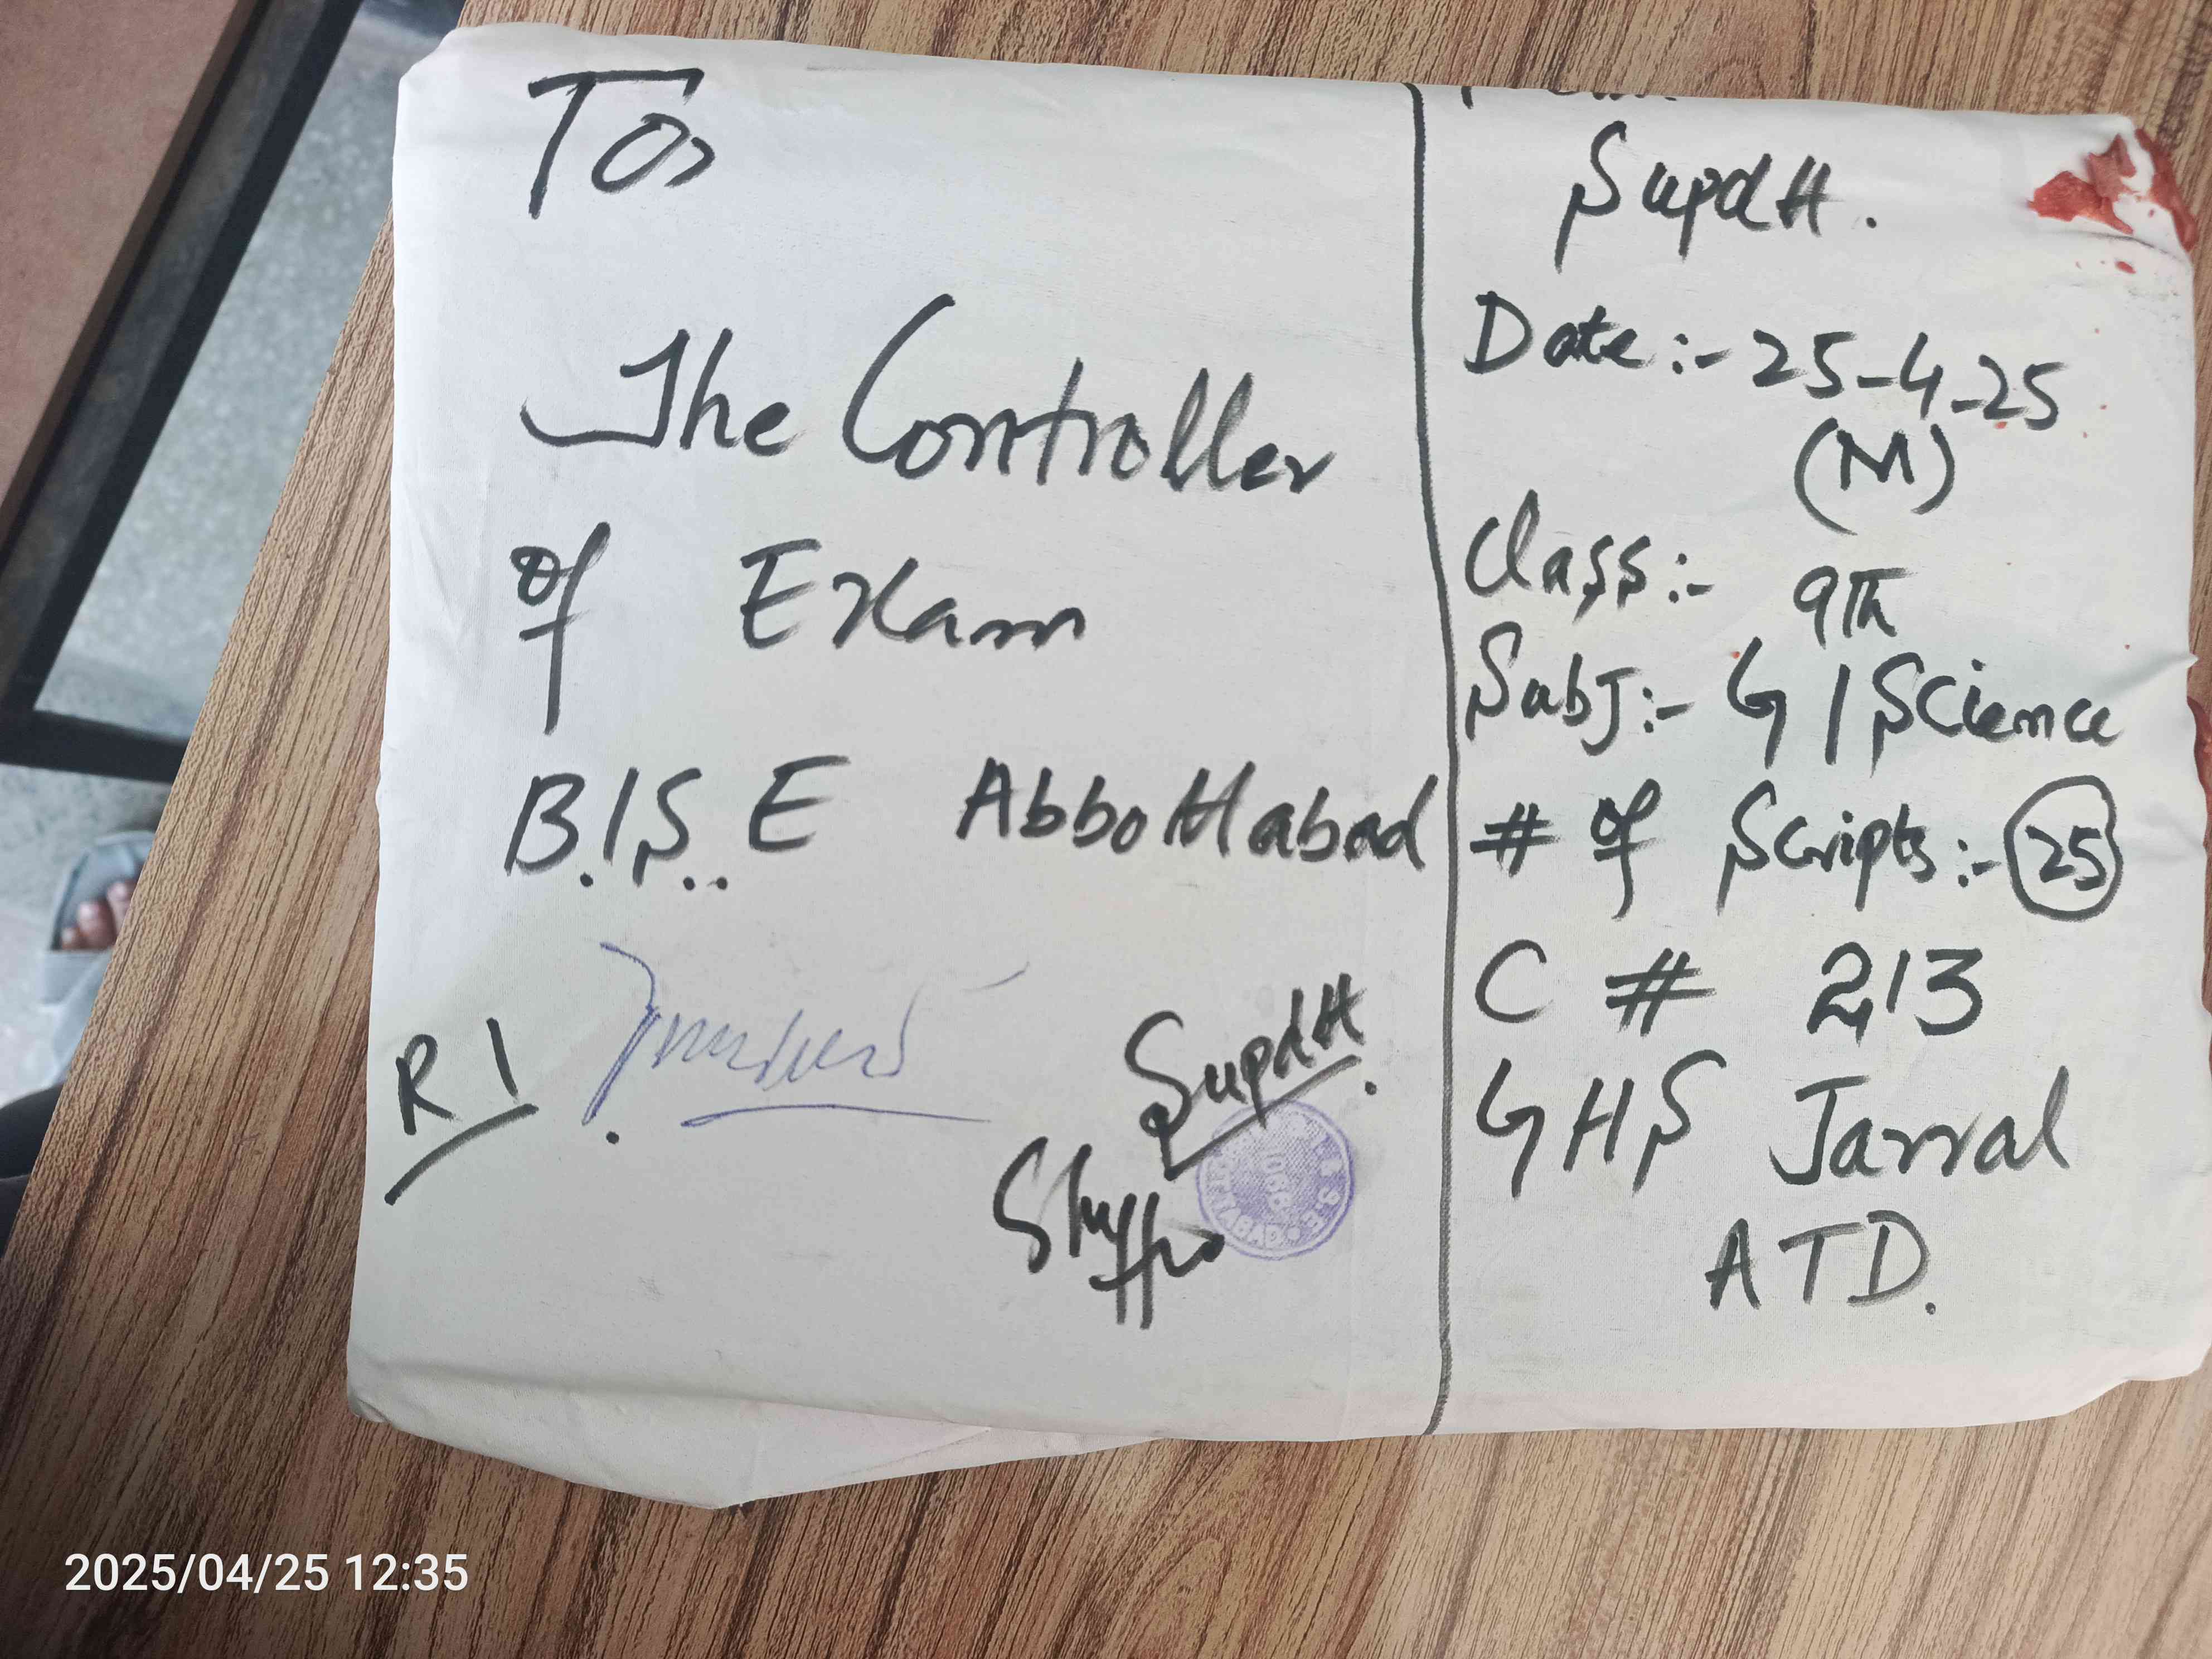 To,
The Controller
of Exam
B.I.S.E Abbottabad
R I
Supdtt.
Supdtt.
Date:- 25-4-25
(M)
Class:- 9Th
Subj:- G/Science
# of Scripts:- 25
C # 213
GHS Jarral
ATD.
2025/04/25 12:35